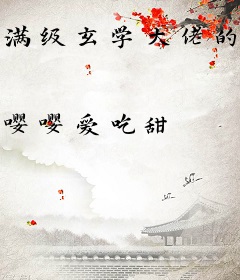 满级玄学大佬的
嘤嘤爱吃甜